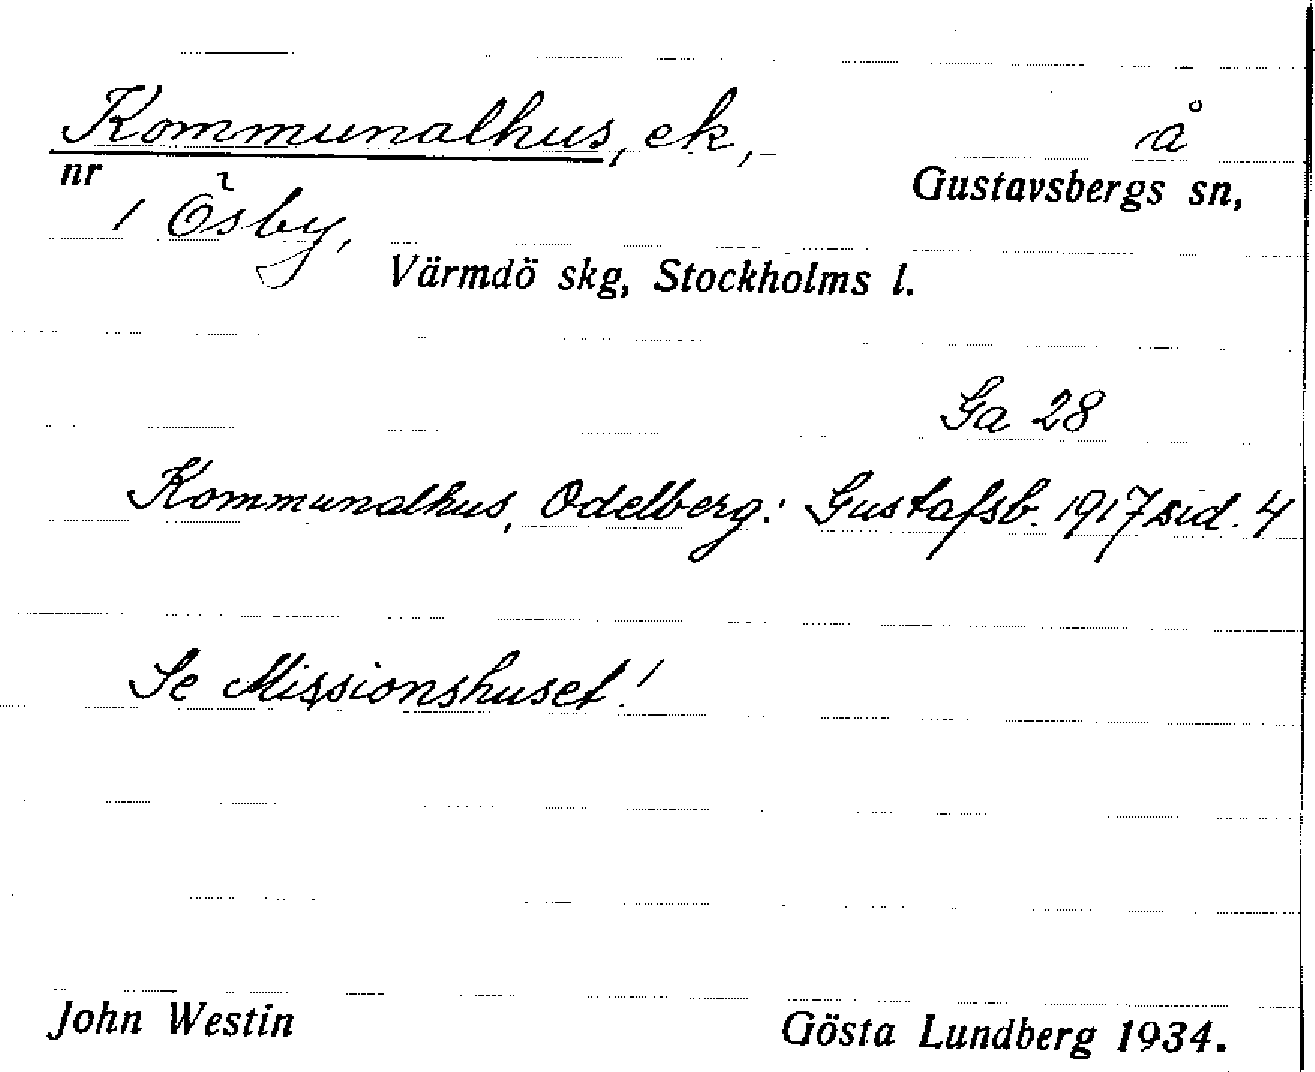 Kommunalhus, ek, å
nr Gustavsbergs sn,
1 Ösby,
Värmdö skg, Stockholms l.
Ga 28
Kommunalhus, Odelberg: Gustafsb. 1917 sid. 4
Se Missionshuset!
John Westin Gösta Lundberg 1934.